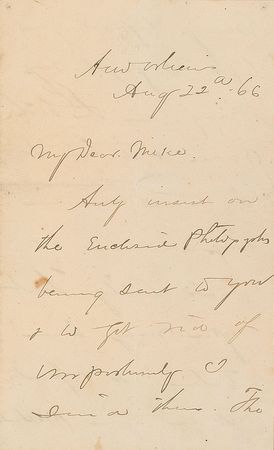 New Orleans
Aug 22d 66
My Dear Mike.
insist on
the Enclosed Photographs
being sent to you
& to get rid of
importunity I
send them. The